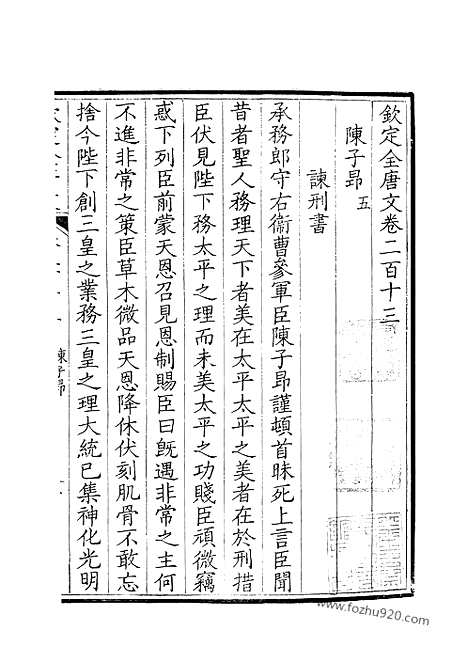 欽定全唐文卷二百十三
陳子昻 五
諫刑書
承務郎守右衞曹參軍臣陳子昻謹頓首昧死上言臣聞
昔者聖人務理天下者美在太平太平之美者在於刑措
臣伏見陛下務太平之理而未美太平之功賤臣頑微竊
惑下列臣前蒙天恩召見恩制賜臣曰旣遇非常之主何
不進非常之策臣草木微品天恩降休伏刻肌骨不敢忘
捨今陛下創三皇之業務三皇之理大統已集神化光明
陳子昻
www.fozhu920.com